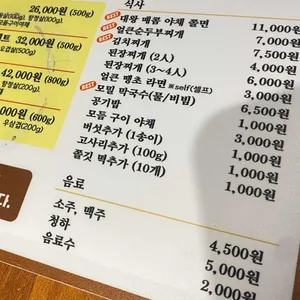 26,000원 (500g)
32,000원 (500g)
42,000원 (800g)
00원 (600g)
우삼겹(200g)
다.
식사
BEST 대왕 매콤 야채 쫄면 11,000원
BEST 얼큰순두부찌개 7,000원
BEST 김치찌개 7,500원
된장찌개 (2인) 4,000원
된장찌개 (3~4인) 6,000원
BEST 얼큰 땡초 라면 ※self(셀프) 3,000원
모밀 막국수(물/비빔) 6,500원
공기밥 1,000원
모듬 구이 야채
버섯추가 (1송이) 1,000원
고사리추가 (100g) 1,000원
쫄깃 떡추가 (10개) 1,000원
음료
소주, 맥주 4,500원
청하 5,000원
음료수 2,000원